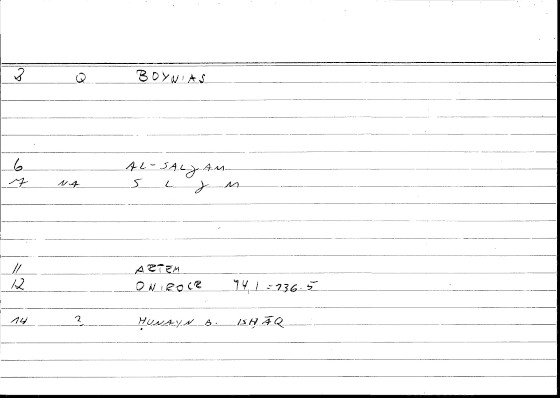 3 Q BOYNIAS
6 AL-SALJAM
7 NA S L J M
11 ARTEM
12 ONIROCR 94,1 = 136.5
14 ? ḤUNAYN B. ISḤĀQ